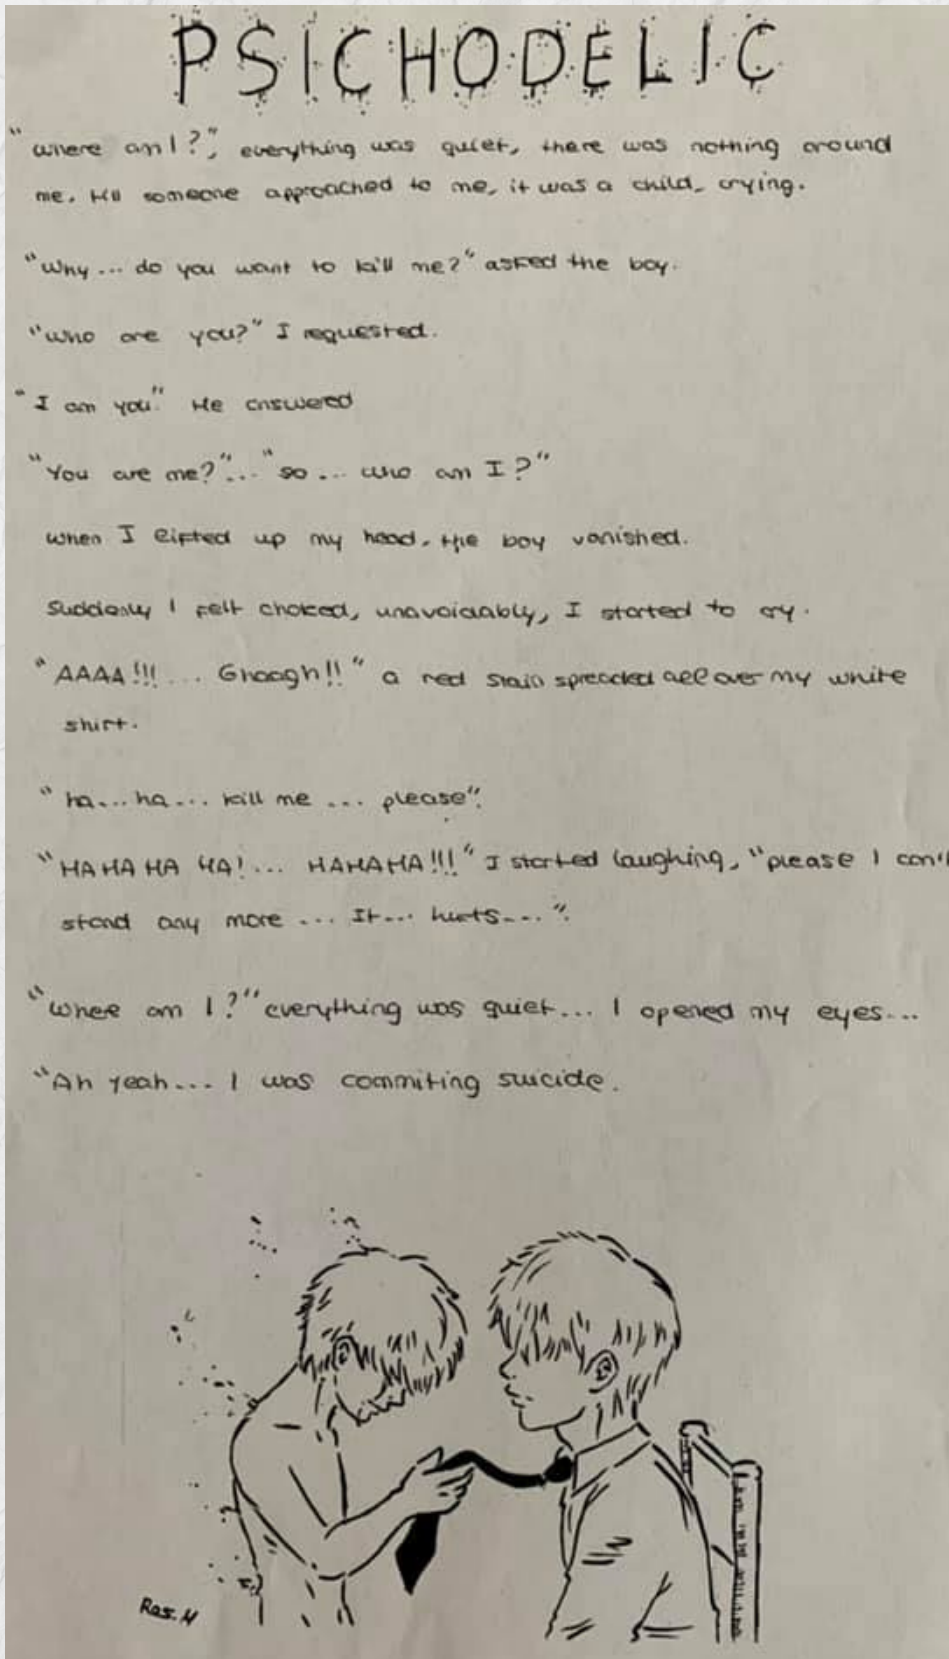 PSICHODELIC
"where am I?", everything was quiet, there was nothing around
me. till someone approached to me, it was a child, crying.
"Why... do you want to kill me?" asked the boy.
"who are you?" I requested.
"I am you" He answered
"You are me?"... "so... who am I?"
when I lifted up my head, the boy vanished.
Suddenly I felt choked, unavoidably, I started to cry.
"AAAA!!!... Ghaagh!!" a red stain spreaded all over my white
shirt.
"ha...ha... kill me ... please".
"HA HA HA HA!... HAHAHA!!!" I started laughing, "please I can't
stand any more ... It... hurts...".
"Where am I?" everything was quiet... I opened my eyes...
"Ah yeah... I was commiting suicide.
Ros. M